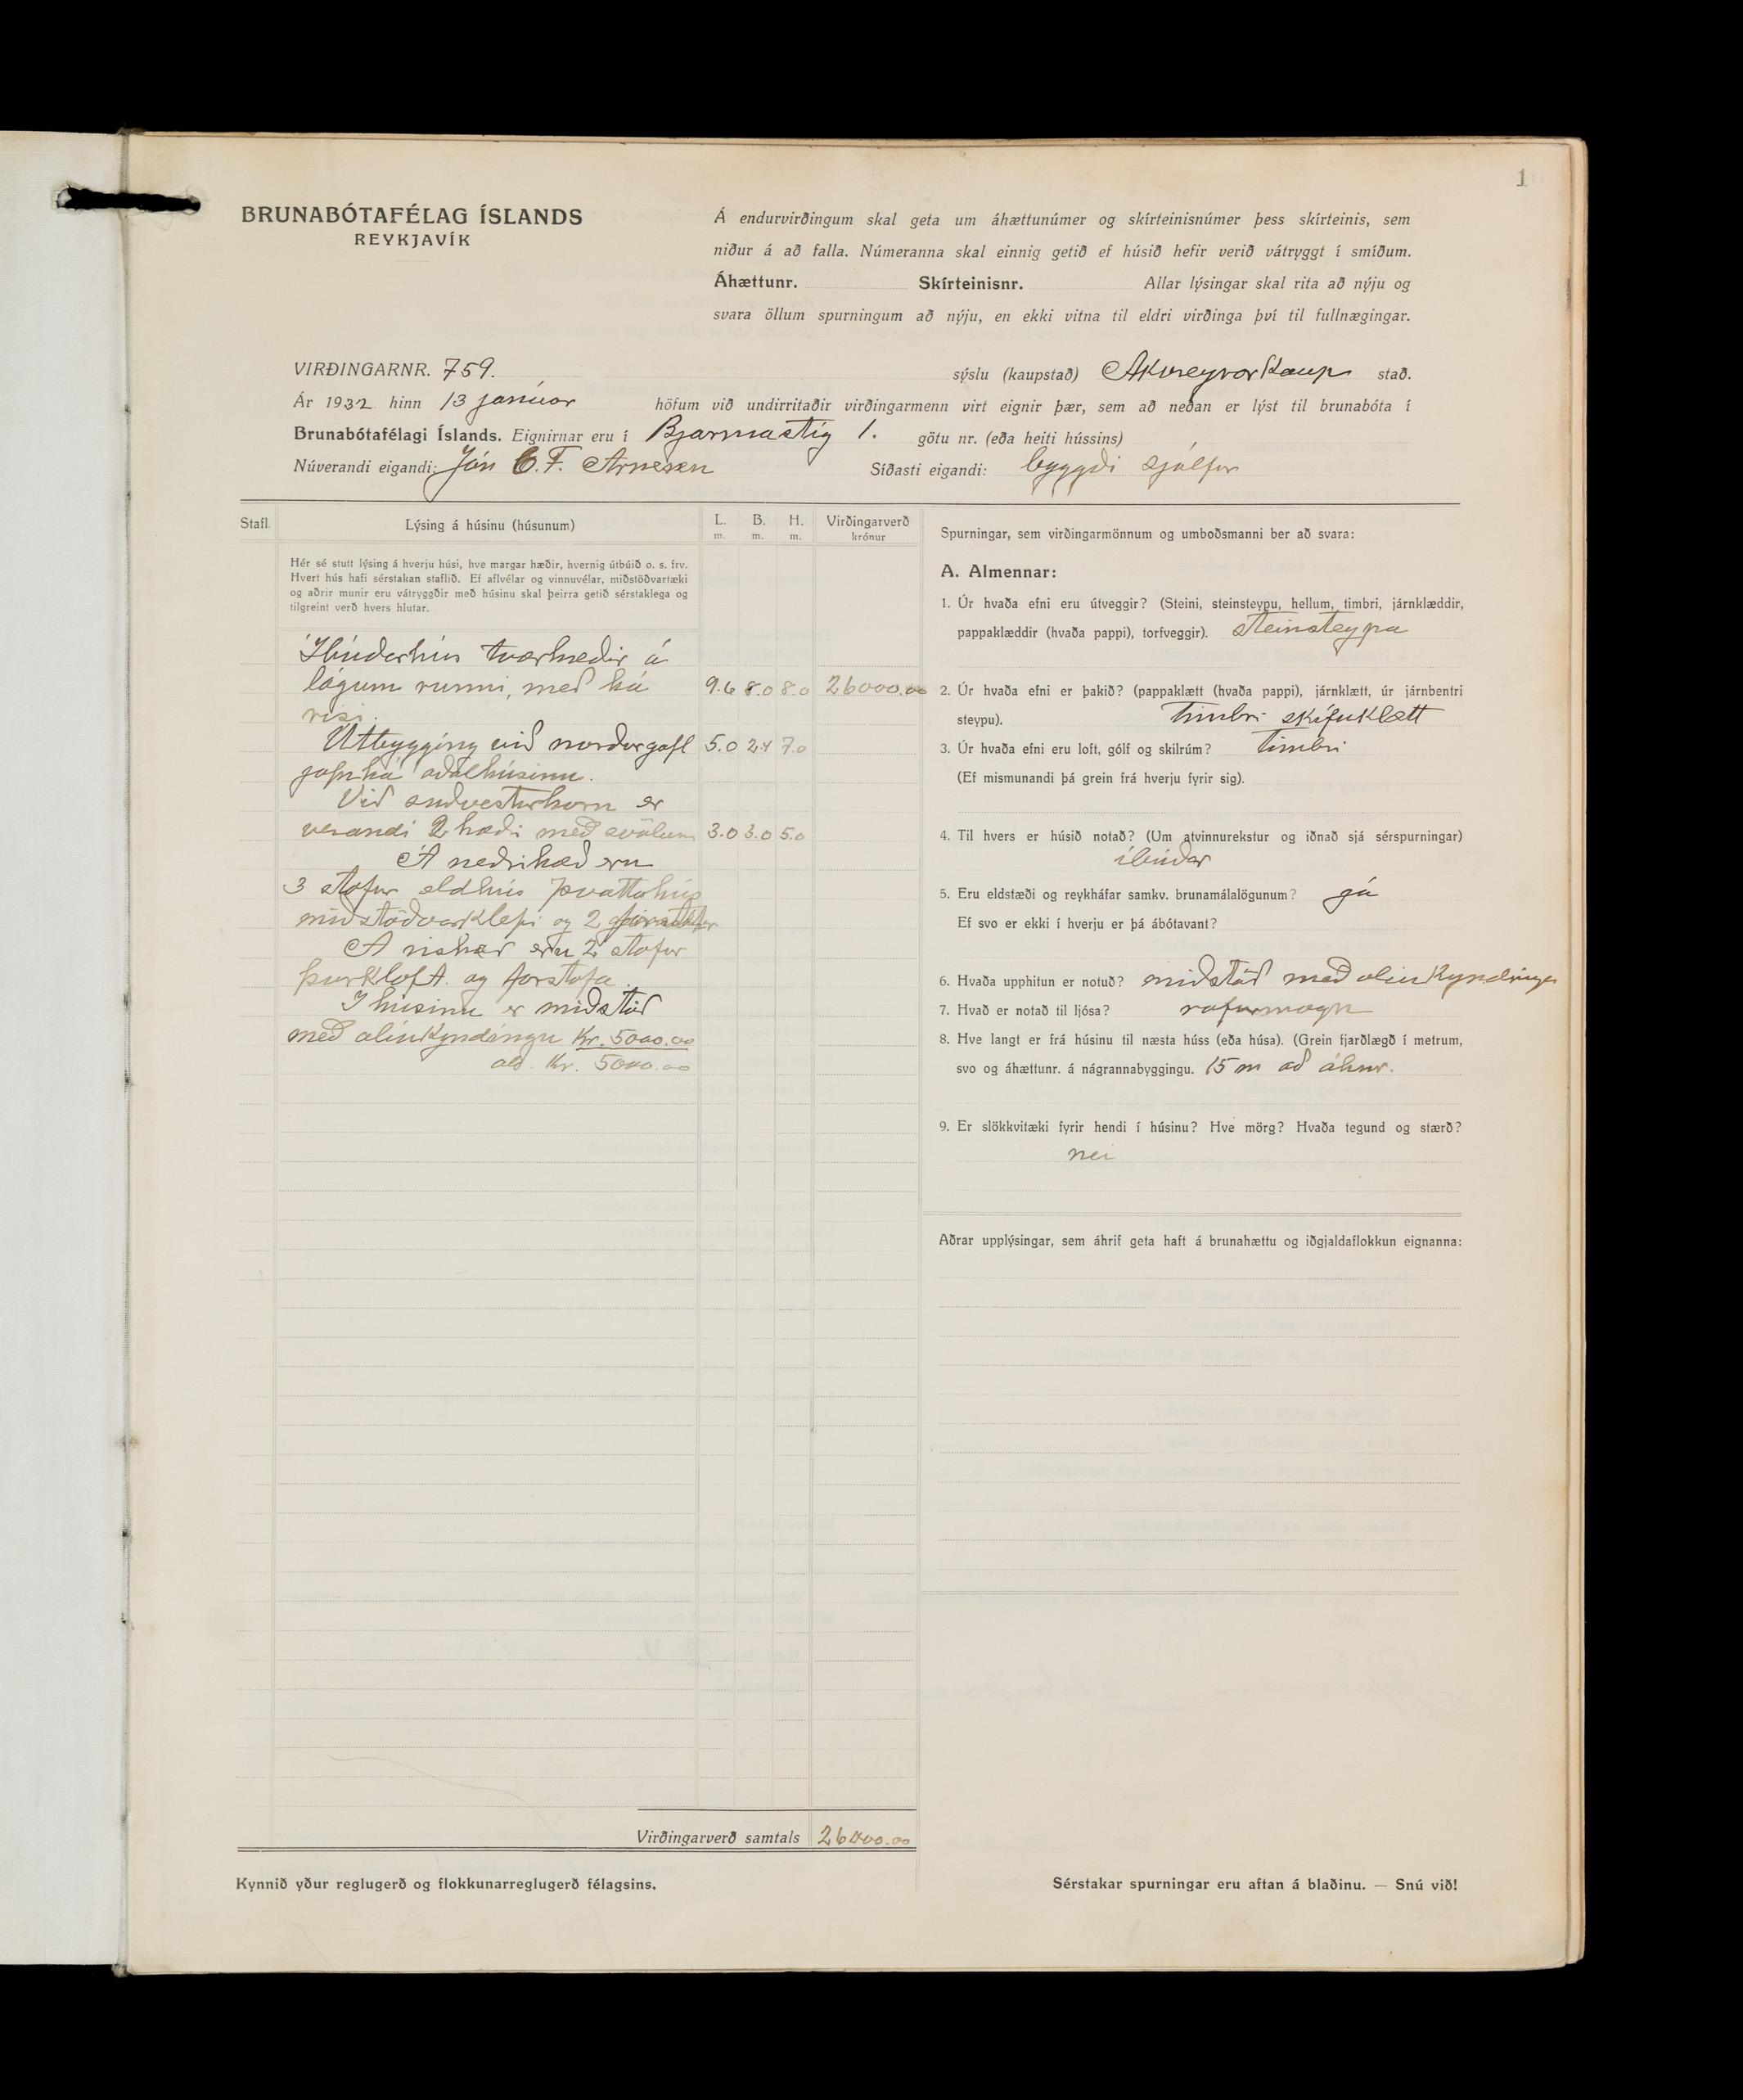 1
BRUNABÓTAFÉLAG ÍSLANDS
REYKJAVÍK
Á endurvirðingum skal geta um áhættunúmer og skírteinisnúmer þess skírteinis, sem
niður á að falla. Númeranna skal einnig getið ef húsið hefir verið vátryggt í smíðum.
Áhættunr. Skírteinisnr. Allar lýsingar skal rita að nýju og
svara öllum spurningum að nýju, en ekki vitna til eldri virðinga því til fullnægingar.
VIRÐINGARNR. 759. sýslu (kaupstað) Akureyrarkaup stað.
Ár 1932 hinn 13 janúar höfum við undirritaðir virðingarmenn virt eignir þær, sem að neðan er lýst til brunabóta í
Brunabótafélagi Íslands. Eignirnar eru í Bjarmastíg 1. götu nr. (eða heiti hússins)
Núverandi eigandi: Jón C. F. Arnesen Síðasti eigandi: byggði sjálfur
Stafl. Lýsing á húsinu (húsunum) L. m. B. m. H. m. Virðingarverð krónur
Hér sé stutt lýsing á hverju húsi, hve margar hæðir, hvernig útbúið o. s. frv.
Hvert hús hafi sérstakan staflið. Ef aflvélar og vinnuvélar, miðstöðvartæki
og aðrir munir eru vátryggðir með húsinu skal þeirra getið sérstaklega og
tilgreint verð hvers hlutar.
Íbúðarhús tværhæðir á
lágum runni, með há
risi. 9.6 8.0 8.0 26000.00
Útbygging við norðurgafl 5.0 2.4 7.0
jafnhá aðalhúsinu.
Við suðvesturhorn er
verandi 2 hæði með svölum 3.0 3.0 5.0
Á neðrihæð eru
3 stofur eldhús þvottahús
miðstöðvarklefi og 2
Á rishæð eru 2 stofur
þurkloft og forstofa.
Í húsinu er miðstöð
með olíukyndingu Kr. 5000.00
als. Kr. 5000.00
Virðingarverð samtals 26000.00
Kynnið yður reglugerð og flokkunarreglugerð félagsins.
Spurningar, sem virðingarmönnum og umboðsmanni ber að svara:
A. Almennar:
1. Úr hvaða efni eru útveggir? (Steini, steinsteypu, hellum, timbri, járnklæddir,
pappaklæddir (hvaða pappi), torfveggir). steinsteypu
2. Úr hvaða efni er þakið? (pappaklætt (hvaða pappi), járnklætt, úr járnbentri
steypu). Timbri skífuklætt
3. Úr hvaða efni eru loft, gólf og skilrúm? Timbri
(Ef mismunandi þá grein frá hverju fyrir sig).
4. Til hvers er húsið notað? (Um atvinnurekstur og iðnað sjá sérspurningar)
íbúðar
5. Eru eldstæði og reykháfar samkv. brunamálalögunum? já
Ef svo er ekki í hverju er þá ábótavant?
6. Hvaða upphitun er notuð? miðstöð með olíukyndingu
7. Hvað er notað til ljósa? rafurmagn
8. Hve langt er frá húsinu til næsta húss (eða húsa). (Grein fjarðlægð í metrum,
svo og áhættunr. á nágrannabyggingu. 15 m að áhnr.
9. Er slökkvitæki fyrir hendi í húsinu? Hve mörg? Hvaða tegund og stærð?
nei
Aðrar upplýsingar, sem áhrif geta haft á brunahættu og iðgjaldaflokkun eignanna:
Sérstakar spurningar eru aftan á blaðinu. — Snú við!